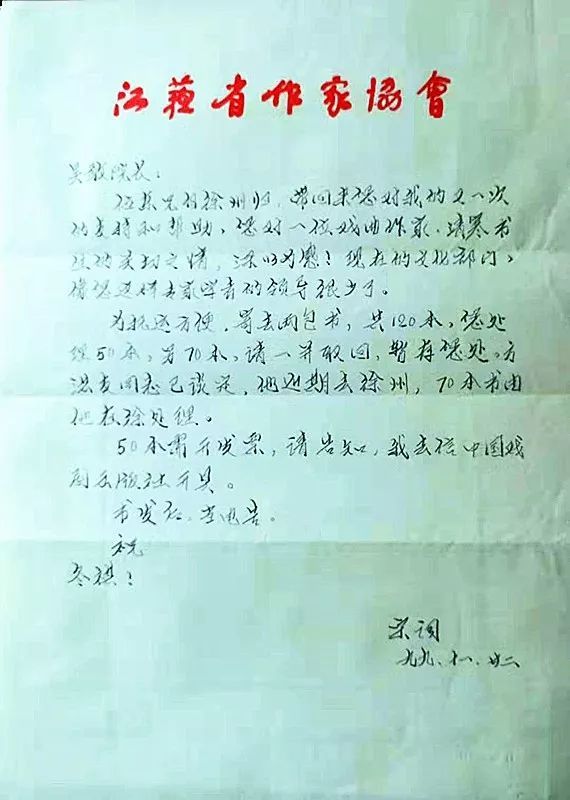 江蘇省作家協會
吴敢院长：
兄自徐州归，带回来您对我的又一次
的支持和帮助，您对一位戏曲作家、清寒书
生的真切之情，深为感！现在的文化部门，
像您这样专家学者的领导很少了。
为托运方便，寄去两包书，共120本，您处
理50本，另70本，请一并取回，暂存您处。方
同志已谈定，他近期去徐州，70本书由
他在徐处理。
50本需开发票，请告知，我去信中国戏
剧出版社开具。
书发后，当电告。
祝
冬祺！
梁
九九、十一、廿二